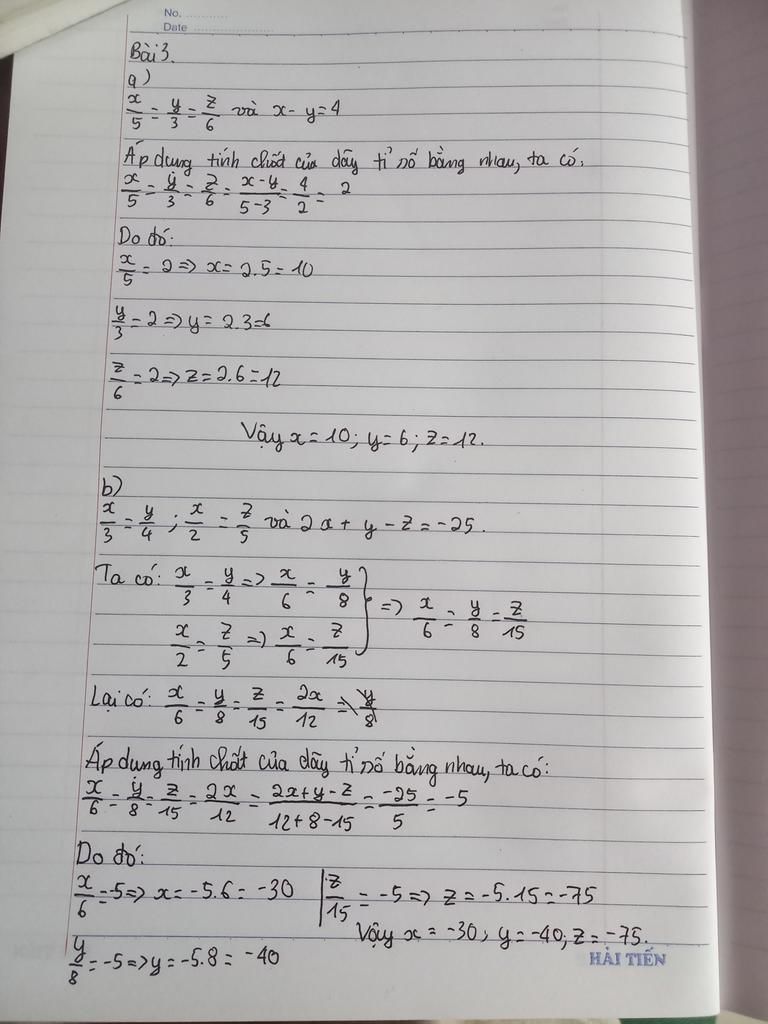 No. ............
Date ......................
Bài 3.
a)
x/5 = y/3 = z/6 và x - y = 4
Áp dụng tính chất của dãy tỉ số bằng nhau, ta có:
x/5 = y/3 = z/6 = x-y/5-3 = 4/2 = 2
Do đó:
x/5 = 2 => x = 2.5 = 10
y/3 = 2 => y = 2.3 = 6
z/6 = 2 => z = 2.6 = 12
Vậy x = 10; y = 6; z = 12.
b)
x/3 = y/4 ; x/2 = z/5 và 2x + y - z = -25.
Ta có: x/3 = y/4 => x/6 = y/8
x/2 = z/5 => x/6 = z/15 } => x/6 = y/8 = z/15
Lại có: x/6 = y/8 = z/15 = 2x/12 = y/8
Áp dụng tính chất của dãy tỉ số bằng nhau, ta có:
x/6 = y/8 = z/15 = 2x/12 = 2x+y-z/12+8-15 = -25/5 = -5
Do đó:
x/6 = -5 => x = -5.6 = -30
y/8 = -5 => y = -5.8 = -40
z/15 = -5 => z = -5.15 = -75
Vậy x = -30; y = -40; z = -75.
HẢI TIẾN